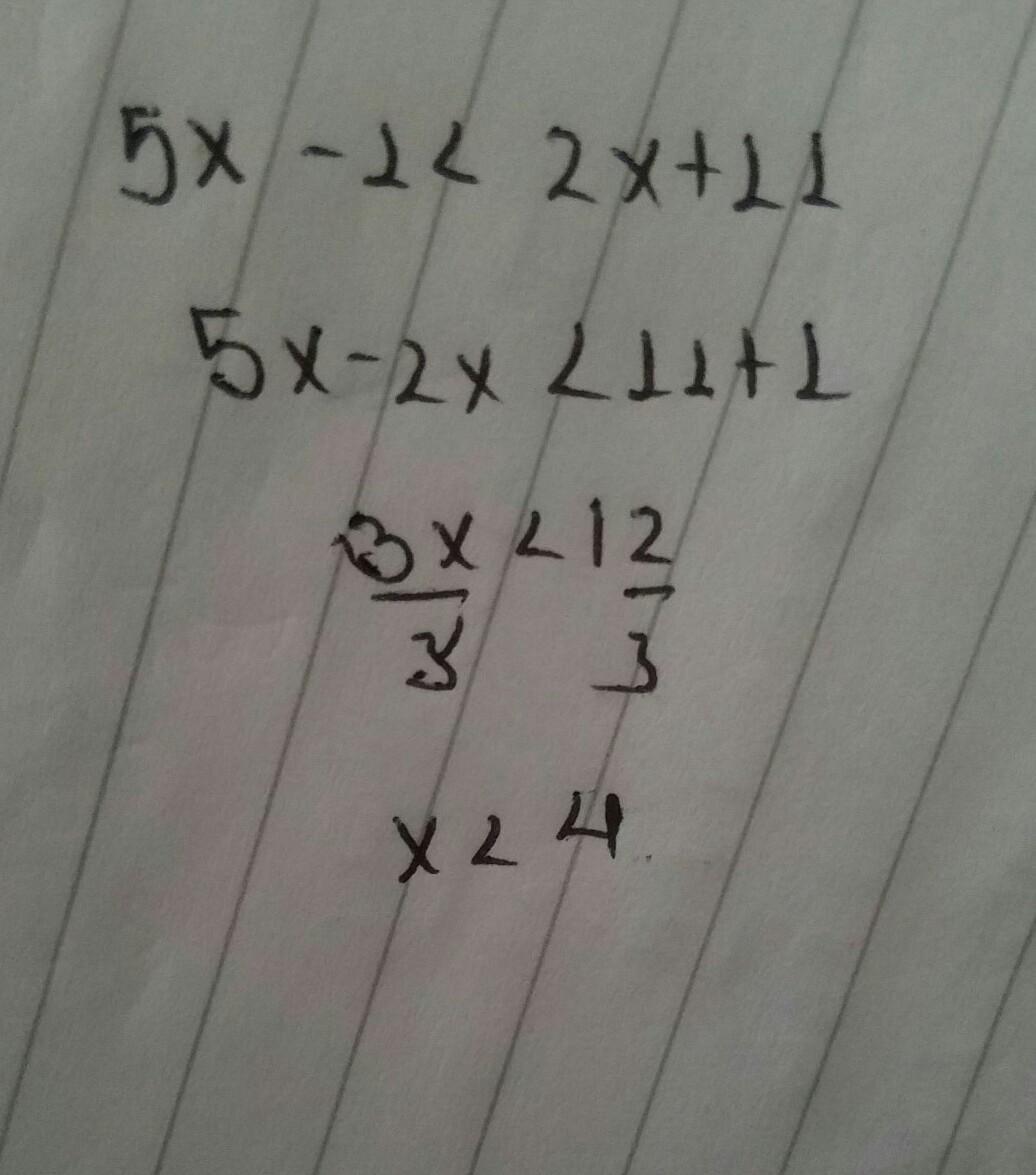 5x - 1 < 2x + 11
5x - 2x < 11 + 1
3x < 12
3 3
x < 4